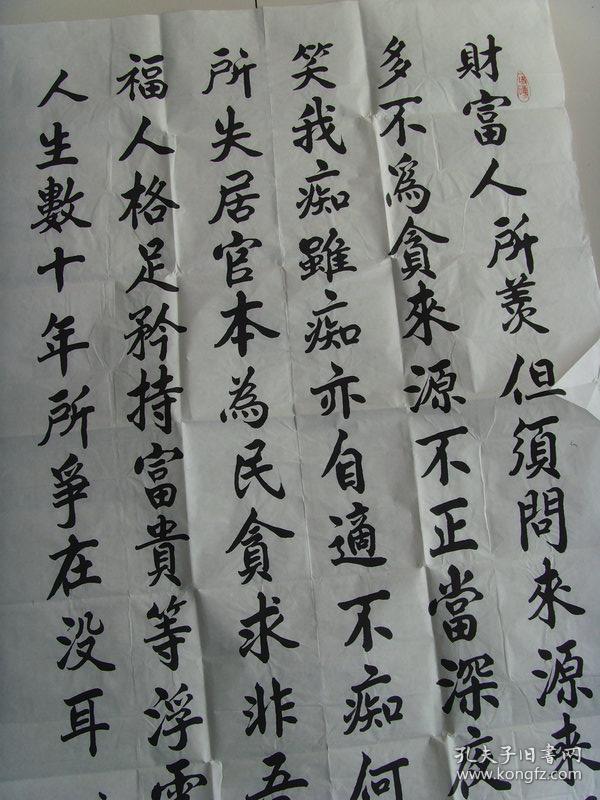 財富人所羨但須問來源来
多不為貪來源不正當深夜
笑我痴雖痴亦自適不痴何
所失居官本為民貪求非吾
福人格足矜持富貴等浮雲
人生數十年所爭在没耳
孔夫子旧书网
www.kongfz.com